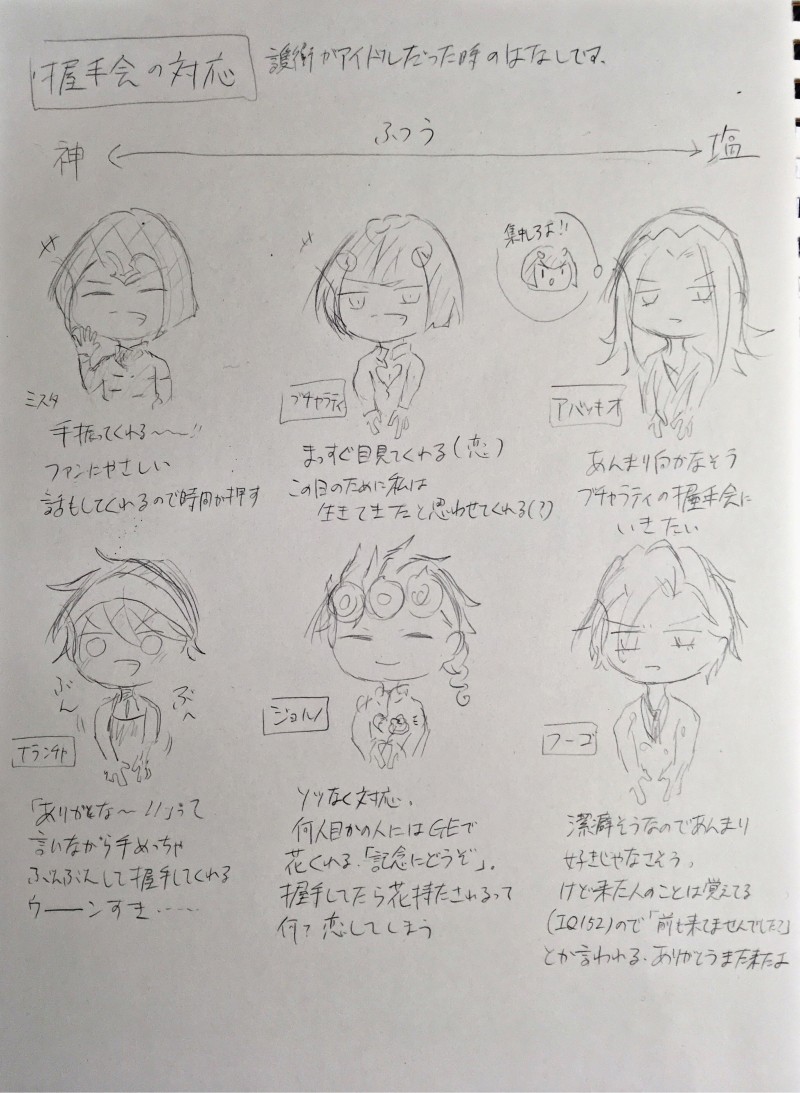 握手会の対応
護衛がアイドルだった時のはなしです。
ふつう
神
塩
集中しろよ!!
ミスタ
手振ってくれる〜〜!!
ファンにやさしい
話もしてくれるので時間が押す
ブチャラティ
まっすぐ目見てくれる(恋)
この日のために私は
生きてきたと思わせてくれる(?)
アバッキオ
あんまり向かなそう
ブチャラティの握手会に
いきたい
ぶん
ぶ〜
ナランチャ
「ありがとな〜!!」って
言いながら手めっちゃ
ぶんぶんして握手してくれる
ウーーンすき・・・・・
ジョルノ
ソツなく対応。
何人目かの人にはGEで
花くれる。「記念にどうぞ」。
握手してたら花持たされるって
何?恋してしまう
フーゴ
潔癖そうなのであんまり
好きじゃなさそう。
けど来た人のことは覚えてる
(IQ152)ので「前も来てませんでした?」
とか言われる。ありがとうまた来たよ